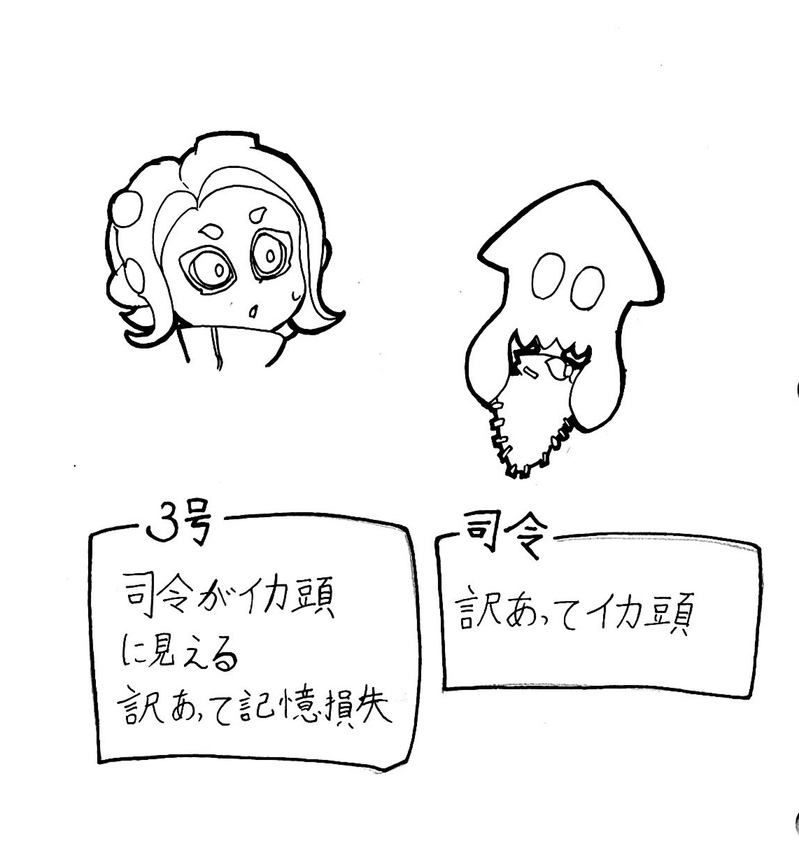 3号
司令がイカ頭
に見える
訳あって記憶損失
司令
訳あってイカ頭